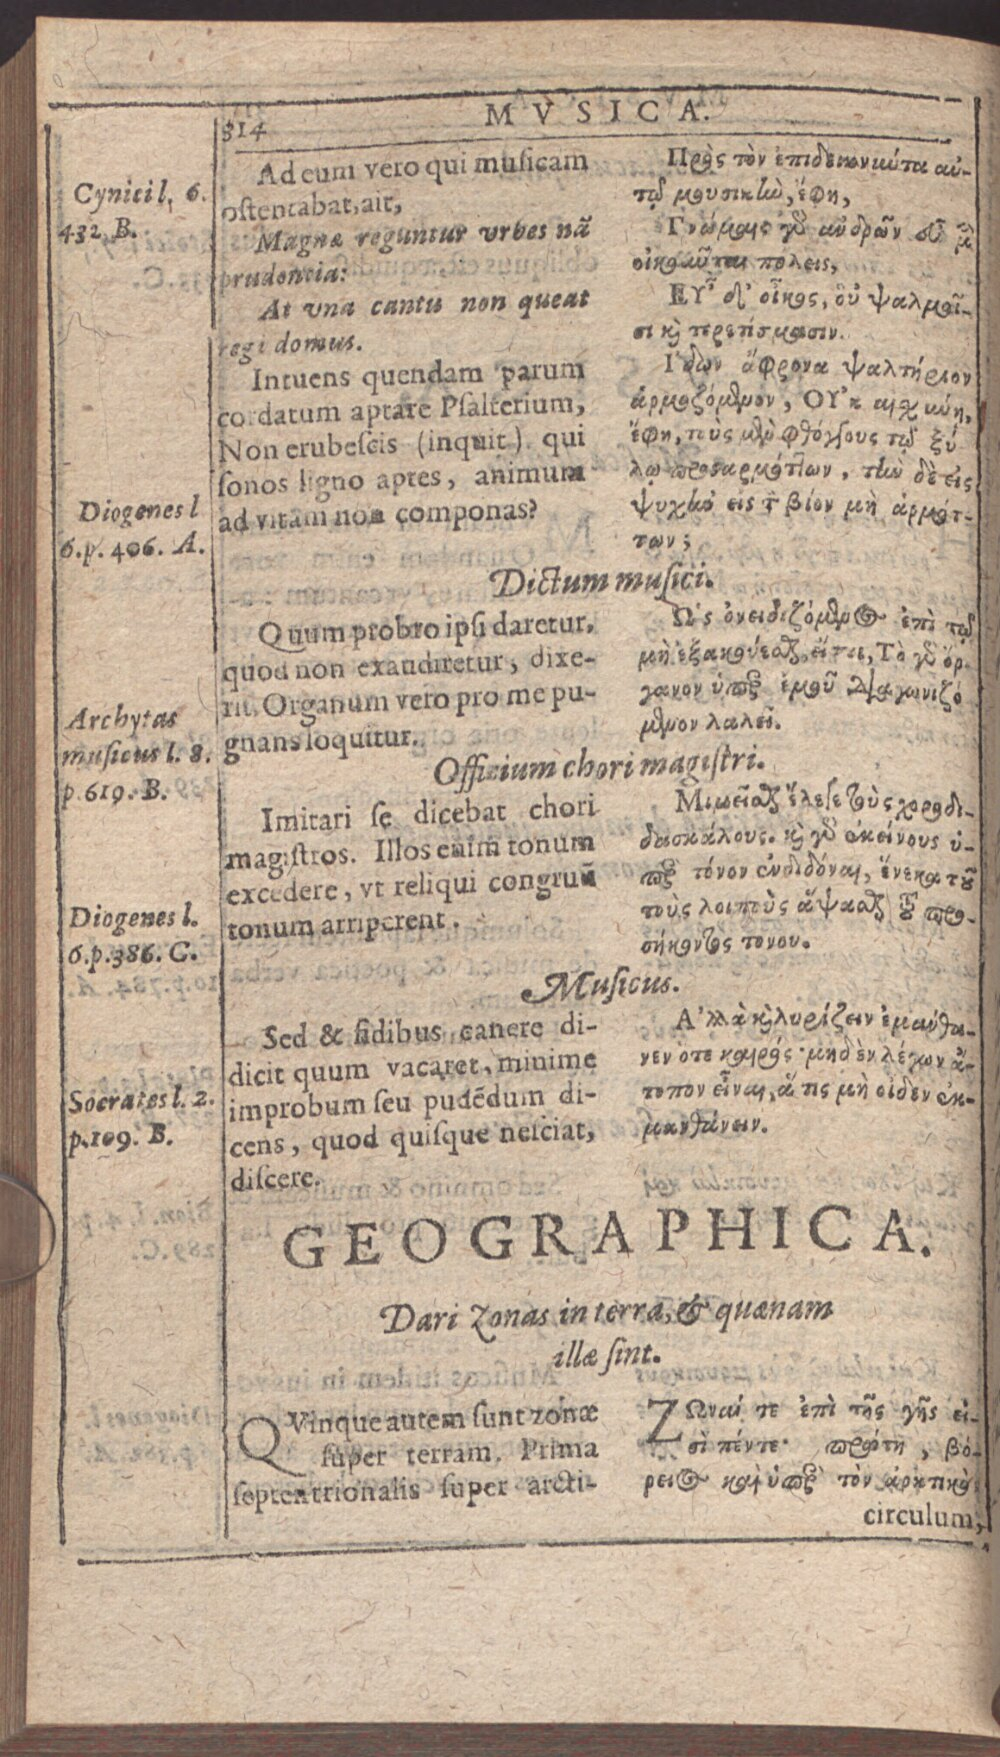 314
MVSICA.
Cynici l. 6.
432. B.
Diogenes l
6.p. 406. A.
Archytas
musicus l. 8.
p.619. B.
Diogenes l.
6.p.386. C.
Socrates l. 2.
p.109. B.
Ad eum vero qui musicam
ostentabat, ait,
Magnæ reguntur vrbes nã
prudentia:
At vna cantu non queat
regi domus.
Intuens quendam parum
cordatum aptare Psalterium,
Non erubescis (inquit) qui
sonos ligno aptes, animum
ad vitam non componas?
Πρὸς τὸν ἐπιδεικνύντα αὐ-
τῷ μουσικὴν, ἔφη,
Γνώμαις γὸ ἀνδρῶν εὖ μ̀
οἰκοῦνται πόλεις,
ΕΥ̓͂ δ' οἶκος, οὐ ψαλμοῖ-
σι κὶ τερετίσμασιν.
Ἰδὼν ἄφρονα ψαλτήριον
ἁρμοζόμενον, ΟΥ̓κ αἰσχύνῃ,
ἔφη, τοὺς μὲν φθόγγους τῷ ξύ
λῳ προσαρμόττων, τὴν δὲ εἰς
ψυχὴν εἰς τ̀ βίον μὴ ἁρμότ-
των;
Dictum musici.
Quum probro ipsi daretur,
quod non exaudiretur, dixe-
rit, Organum vero pro me pu-
gnans loquitur.
Ὡς ὀνειδιζόμενος ἐπὶ τῷ
μὴ ἐξακούεσθαι, εἴπε, Τὸ γὸ ὄρ-
γανον ὑπὲρ ἐμοῦ διαγωνιζό
μενον λαλεῖ.
Officium chori magistri.
Imitari se dicebat chori
magistros. Illos enim tonum
excedere, vt reliqui congruũ
tonum arriperent.
Μιμεῖσθαι ἔλεγε τοὺς χοροδι-
δασκάλους. κὶ γὸ ἐκείνους ὑ-
πὲρ τόνον ἐνδιδόναι, ἕνεκα τοῦ
τοὺς λοιποὺς ἅψασθαι τοῦ προ-
σήκοντος τονου.
Musicus.
Sed & fidibus canere di-
dicit quum vacaret, minime
improbum seu pudẽdum di-
cens, quod quisque nesciat,
discere.
Ἀλλὰ κὶ λυρίζειν ἐμάνθα-
νεν ὁτε καιρός· μηδὲν λέγων ἄ-
τοπον εἶναι, ἅ τις μὴ οἶδεν ἐκ-
μανθάνειν.
GEOGRAPHICA.
Dari Zonas in terra, & quænam
illæ sint.
QVinque autem sunt zonæ
super terram. Prima
septentrionalis super arcti-
ΖΩναί τε ἐπὶ τῆς γῆς εἰ-
σὶ πέντε· πρώτη, βό-
ρειος καὶ ὑπὲρ τὸν ἀρκτικὸν
circulum,